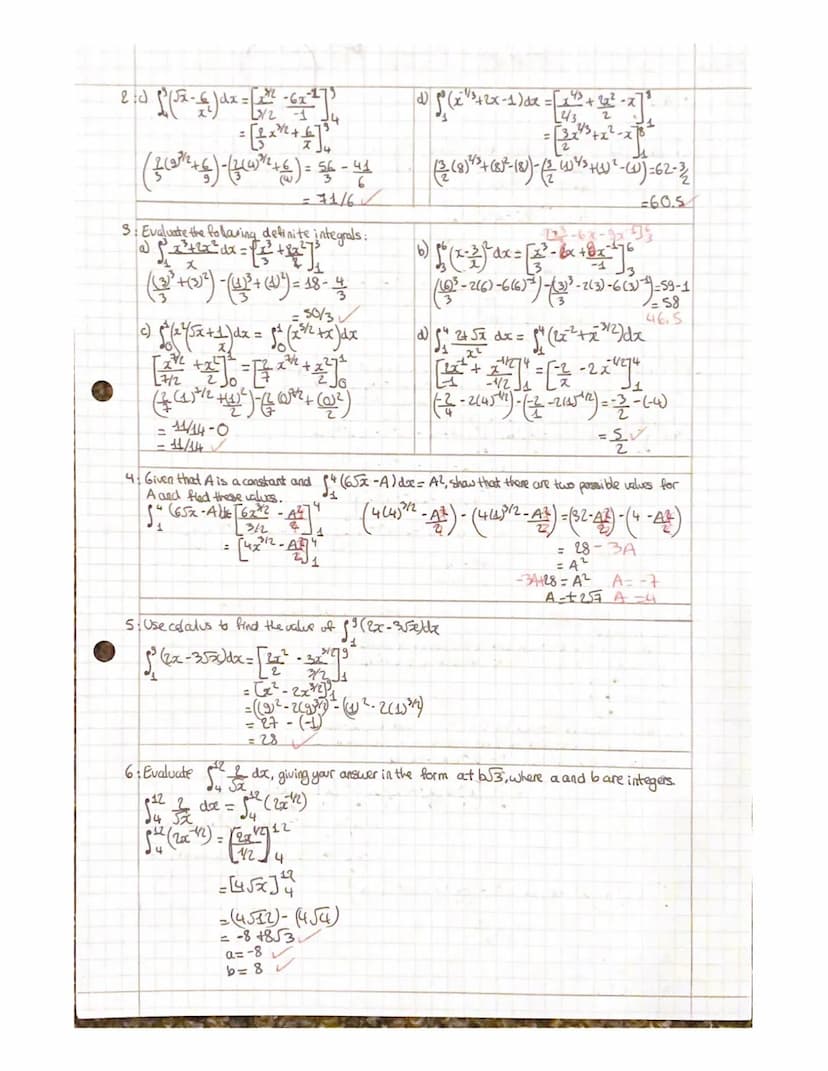 2: c) ∫₄⁹(√x - 6/x²)dx = [x^(3/2)/(3/2) - 6x⁻¹/-1]₄⁹
= [2/3 x^(3/2) + 6/x]₄⁹
(2/3(9)^(3/2) + 6/9) - (2/3(4)^(3/2) + 6/(4)) = 56/3 - 41/6
= 71/6 ✓
d) ∫₁⁸(x^(-1/3) + 2x - 1)dx = [x^(2/3)/(2/3) + 2x²/2 - x]₁⁸
= [3/2 x^(2/3) + x² - x]₁⁸
(3/2(8)^(2/3) + (8)² - (8)) - (3/2(1)^(2/3) + (1)² - (1)) = 62 - 3/2
= 60.5 ✓
3: Evaluate the following definite integrals:
a) ∫₁³ x³+2x²/x dx = [x³/3 + 2x²/2]₁³
((3)³/3 + (3)²) - ((1)³/3 + (1)²) = 18 - 4/3
= 50/3 ✓
b) ∫₃⁶(x - 3/x)² dx = [x³/3 - 6x + 9x⁻¹/-1]₃⁶
((6)³/3 - 2(6) - 6(6)⁻¹) - ((3)³/3 - 2(3) - 6(3)⁻¹) = 59 - 1
= 58
46.5
c) ∫₀¹(x²√x + 1/x)dx = ∫₀¹(x^(5/2) + x)dx
[x^(7/2)/7/2 + x²/2]₀¹ = [2/7 x^(7/2) + x²/2]₀¹
(2/7(1)^(7/2) + (1)²/2) - (2/7(0)^(7/2) + (0)²/2)
= 11/14 - 0
= 11/14 ✓
d) ∫₁⁴ 2+√x/x² dx = ∫₁⁴(2x⁻² + x^(-3/2))dx
[2x⁻¹/-1 + x^(-1/2)/-1/2]₁⁴ = [-2/x - 2x^(-1/2)]₁⁴
(-2/4 - 2(4)^(-1/2)) - (-2/1 - 2(1)^(-1/2)) = -3/2 - (-4)
= 5/2 ✓
4: Given that A is a constant and ∫₁⁴(6√x - A)dx = A², show that there are two possible values for
A and find these values.
∫₁⁴(6√x - A)dx [6x^(3/2)/3/2 - A²/2]₁⁴
= [4x^(3/2) - A²/2]₁⁴
(4(4)^(3/2) - A²/2) - (4(1)^(3/2) - A²/2) = (32 - A²/2) - (4 - A²/2)
= 28 - 3A
= A²
-3A+28 = A² A = -7
A = ±2√7 A = 4
5: Use calculus to find the value of ∫₁⁹(2x - 3√x)dx
∫₁⁹(2x - 3√x)dx = [2x²/2 - 3x^(3/2)/3/2]₁⁹
= [x² - 2x^(3/2)]₁⁹
= ((9)² - 2(9)^(3/2)) - (1)² - 2(1)^(3/2))
= 27 - (-1)
= 28 ✓
6: Evaluate ∫₄¹² 2/√x dx, giving your answer in the form a+b√3, where a and b are integers.
∫₄¹² 2/√x dx = ∫₄¹²(2x^(-1/2))
∫₄¹²(2x^(-1/2)) = [2x^(1/2)/1/2]₄¹²
= [4√x]₄¹²
= (4√12) - (4√4)
= -8 + 8√3 ✓
a = -8 ✓
b = 8 ✓